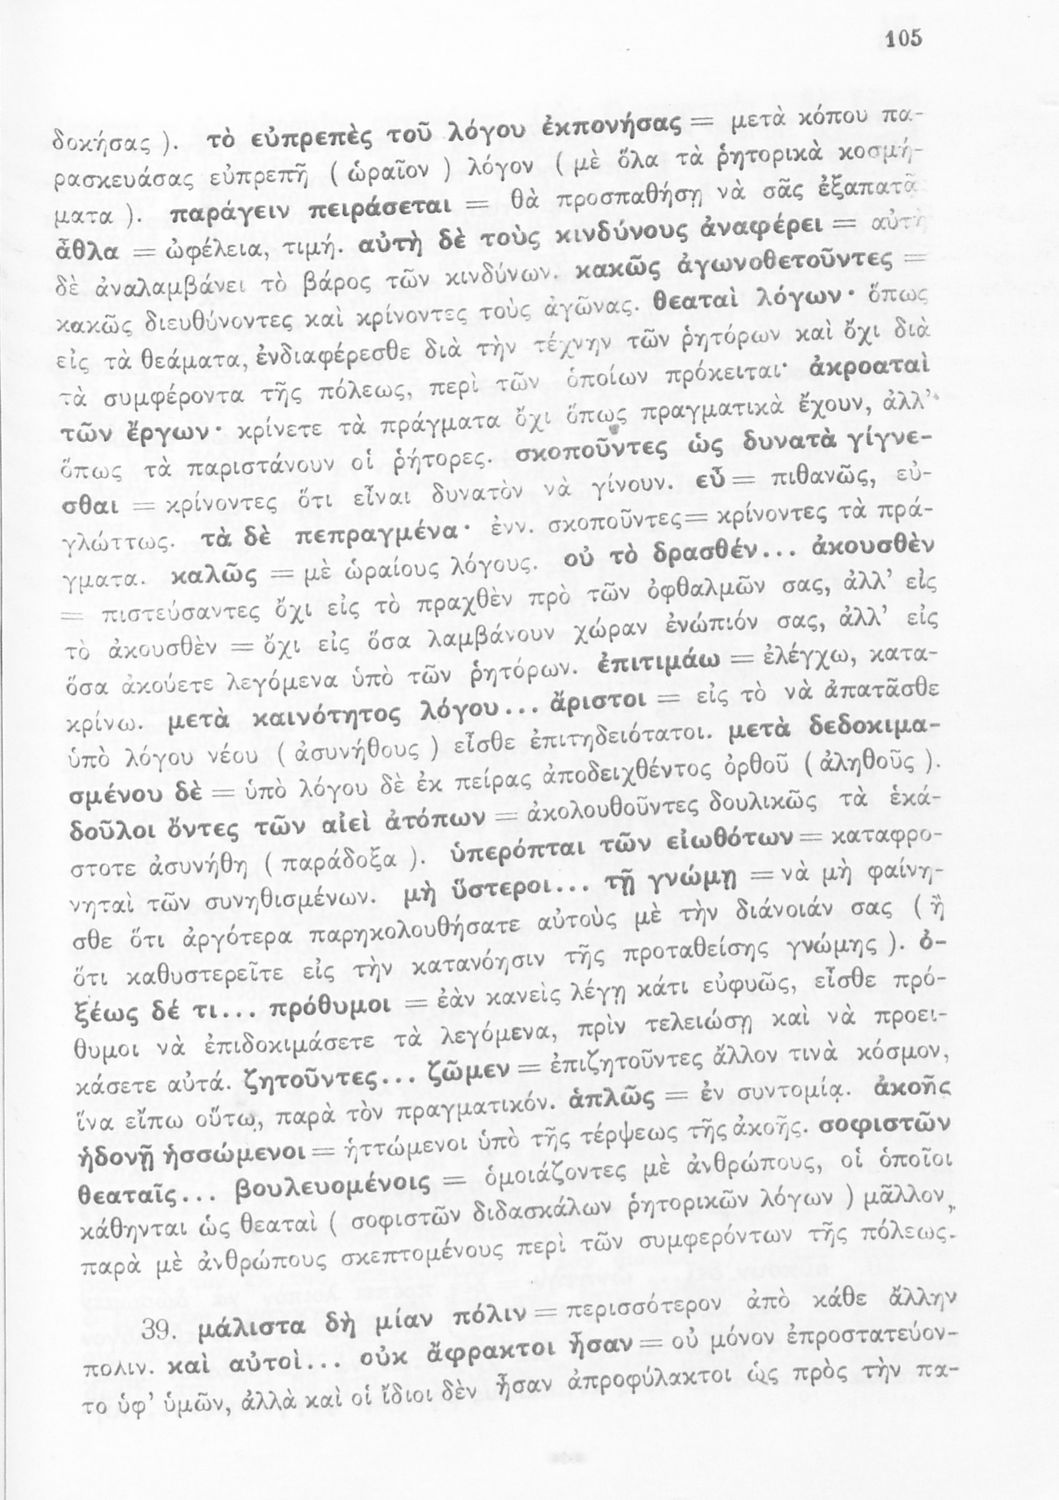 105
δοκήσας ). τὸ εὐπρεπὲς τοῦ λόγου ἐκπονήσας = μετὰ κόπου πα-
ρασκευάσας εὐπρεπῆ ( ὡραῖον ) λόγον ( μὲ ὅλα τὰ ῥητορικὰ κοσμή-
ματα ). παράγειν πειράσεται = θὰ προσπαθήσῃ νὰ σᾶς ἐξαπατᾷ
ἆθλα = ὠφέλεια, τιμή. αὐτὴ δὲ τοὺς κινδύνους ἀναφέρει = αὐτὴ
δὲ ἀναλαμβάνει τὸ βάρος τῶν κινδύνων. κακῶς ἀγωνοθετοῦντες =
κακῶς διευθύνοντες καὶ κρίνοντες τοὺς ἀγῶνας. θεαταὶ λόγων· ὅπως
εἰς τὰ θεάματα, ἐνδιαφέρεσθε διὰ τὴν τέχνην τῶν ῥητόρων καὶ ὄχι διὰ
τὰ συμφέροντα τῆς πόλεως, περὶ τῶν ὁποίων πρόκειται· ἀκροαταὶ
τῶν ἔργων· κρίνετε τὰ πράγματα ὄχι ὅπως πραγματικὰ ἔχουν, ἀλλ'
ὅπως τὰ παριστάνουν οἱ ῥήτορες. σκοποῦντες ὡς δυνατὰ γίγνε-
σθαι = κρίνοντες ὅτι εἶναι δυνατὸν νὰ γίνουν. εὖ = πιθανῶς, εὐ-
γλώττως. τὰ δὲ πεπραγμένα· ἐνν. σκοποῦντες = κρίνοντες τὰ πρά-
γματα. καλῶς = μὲ ὡραίους λόγους. οὐ τὸ δρασθέν... ἀκουσθὲν
= πιστεύσαντες ὄχι εἰς τὸ πραχθὲν πρὸ τῶν ὀφθαλμῶν σας, ἀλλ' εἰς
τὸ ἀκουσθὲν = ὄχι εἰς ὅσα λαμβάνουν χώραν ἐνώπιόν σας, ἀλλ' εἰς
ὅσα ἀκούετε λεγόμενα ὑπὸ τῶν ῥητόρων. ἐπιτιμάω = ἐλέγχω, κατα-
κρίνω. μετὰ καινότητος λόγου... ἄριστοι = εἰς τὸ νὰ ἀπατᾶσθε
ὑπὸ λόγου νέου ( ἀσυνήθους ) εἶσθε ἐπιτηδειότατοι. μετὰ δεδοκιμα-
σμένου δὲ = ὑπὸ λόγου δὲ ἐκ πείρας ἀποδειχθέντος ὀρθοῦ ( ἀληθοῦς ).
δοῦλοι ὄντες τῶν αἰεὶ ἀτόπων = ἀκολουθοῦντες δουλικῶς τὰ ἑκά-
στοτε ἀσυνήθη ( παράδοξα ). ὑπερόπται τῶν εἰωθότων = καταφρο-
νηταὶ τῶν συνηθισμένων. μὴ ὕστεροι... τῇ γνώμῃ = νὰ μὴ φαίνη-
σθε ὅτι ἀργότερα παρηκολουθήσατε αὐτοὺς μὲ τὴν διάνοιάν σας ( ἢ
ὅτι καθυστερεῖτε εἰς τὴν κατανόησιν τῆς προταθείσης γνώμης ). ὀ-
ξέως δέ τι... πρόθυμοι = ἐὰν κανεὶς λέγῃ κάτι εὐφυῶς, εἶσθε πρό-
θυμοι νὰ ἐπιδοκιμάσετε τὰ λεγόμενα, πρὶν τελειώσῃ καὶ νὰ προει-
κάσετε αὐτά. ζητοῦντες... ζῶμεν = ἐπιζητοῦντες ἄλλον τινὰ κόσμον,
ἵνα εἴπω οὕτω, παρὰ τὸν πραγματικόν. ἁπλῶς = ἐν συντομίᾳ. ἀκοῆς
ἡδονῇ ἡσσώμενοι = ἡττώμενοι ὑπὸ τῆς τέρψεως τῆς ἀκοῆς. σοφιστῶν
θεαταῖς... βουλευομένοις = ὁμοιάζοντες μὲ ἀνθρώπους, οἱ ὁποῖοι
κάθηνται ὡς θεαταὶ ( σοφιστῶν διδασκάλων ῥητορικῶν λόγων ) μᾶλλον
παρὰ μὲ ἀνθρώπους σκεπτομένους περὶ τῶν συμφερόντων τῆς πόλεως.
39. μάλιστα δὴ μίαν πόλιν = περισσότερον ἀπὸ κάθε ἄλλην
πολιν. καὶ αὐτοὶ... οὐκ ἄφρακτοι ἦσαν = οὐ μόνον ἐπροστατεύον-
το ὑφ' ὑμῶν, ἀλλὰ καὶ οἱ ἴδιοι δὲν ἦσαν ἀπροφύλακτοι ὡς πρὸς τὴν πα-